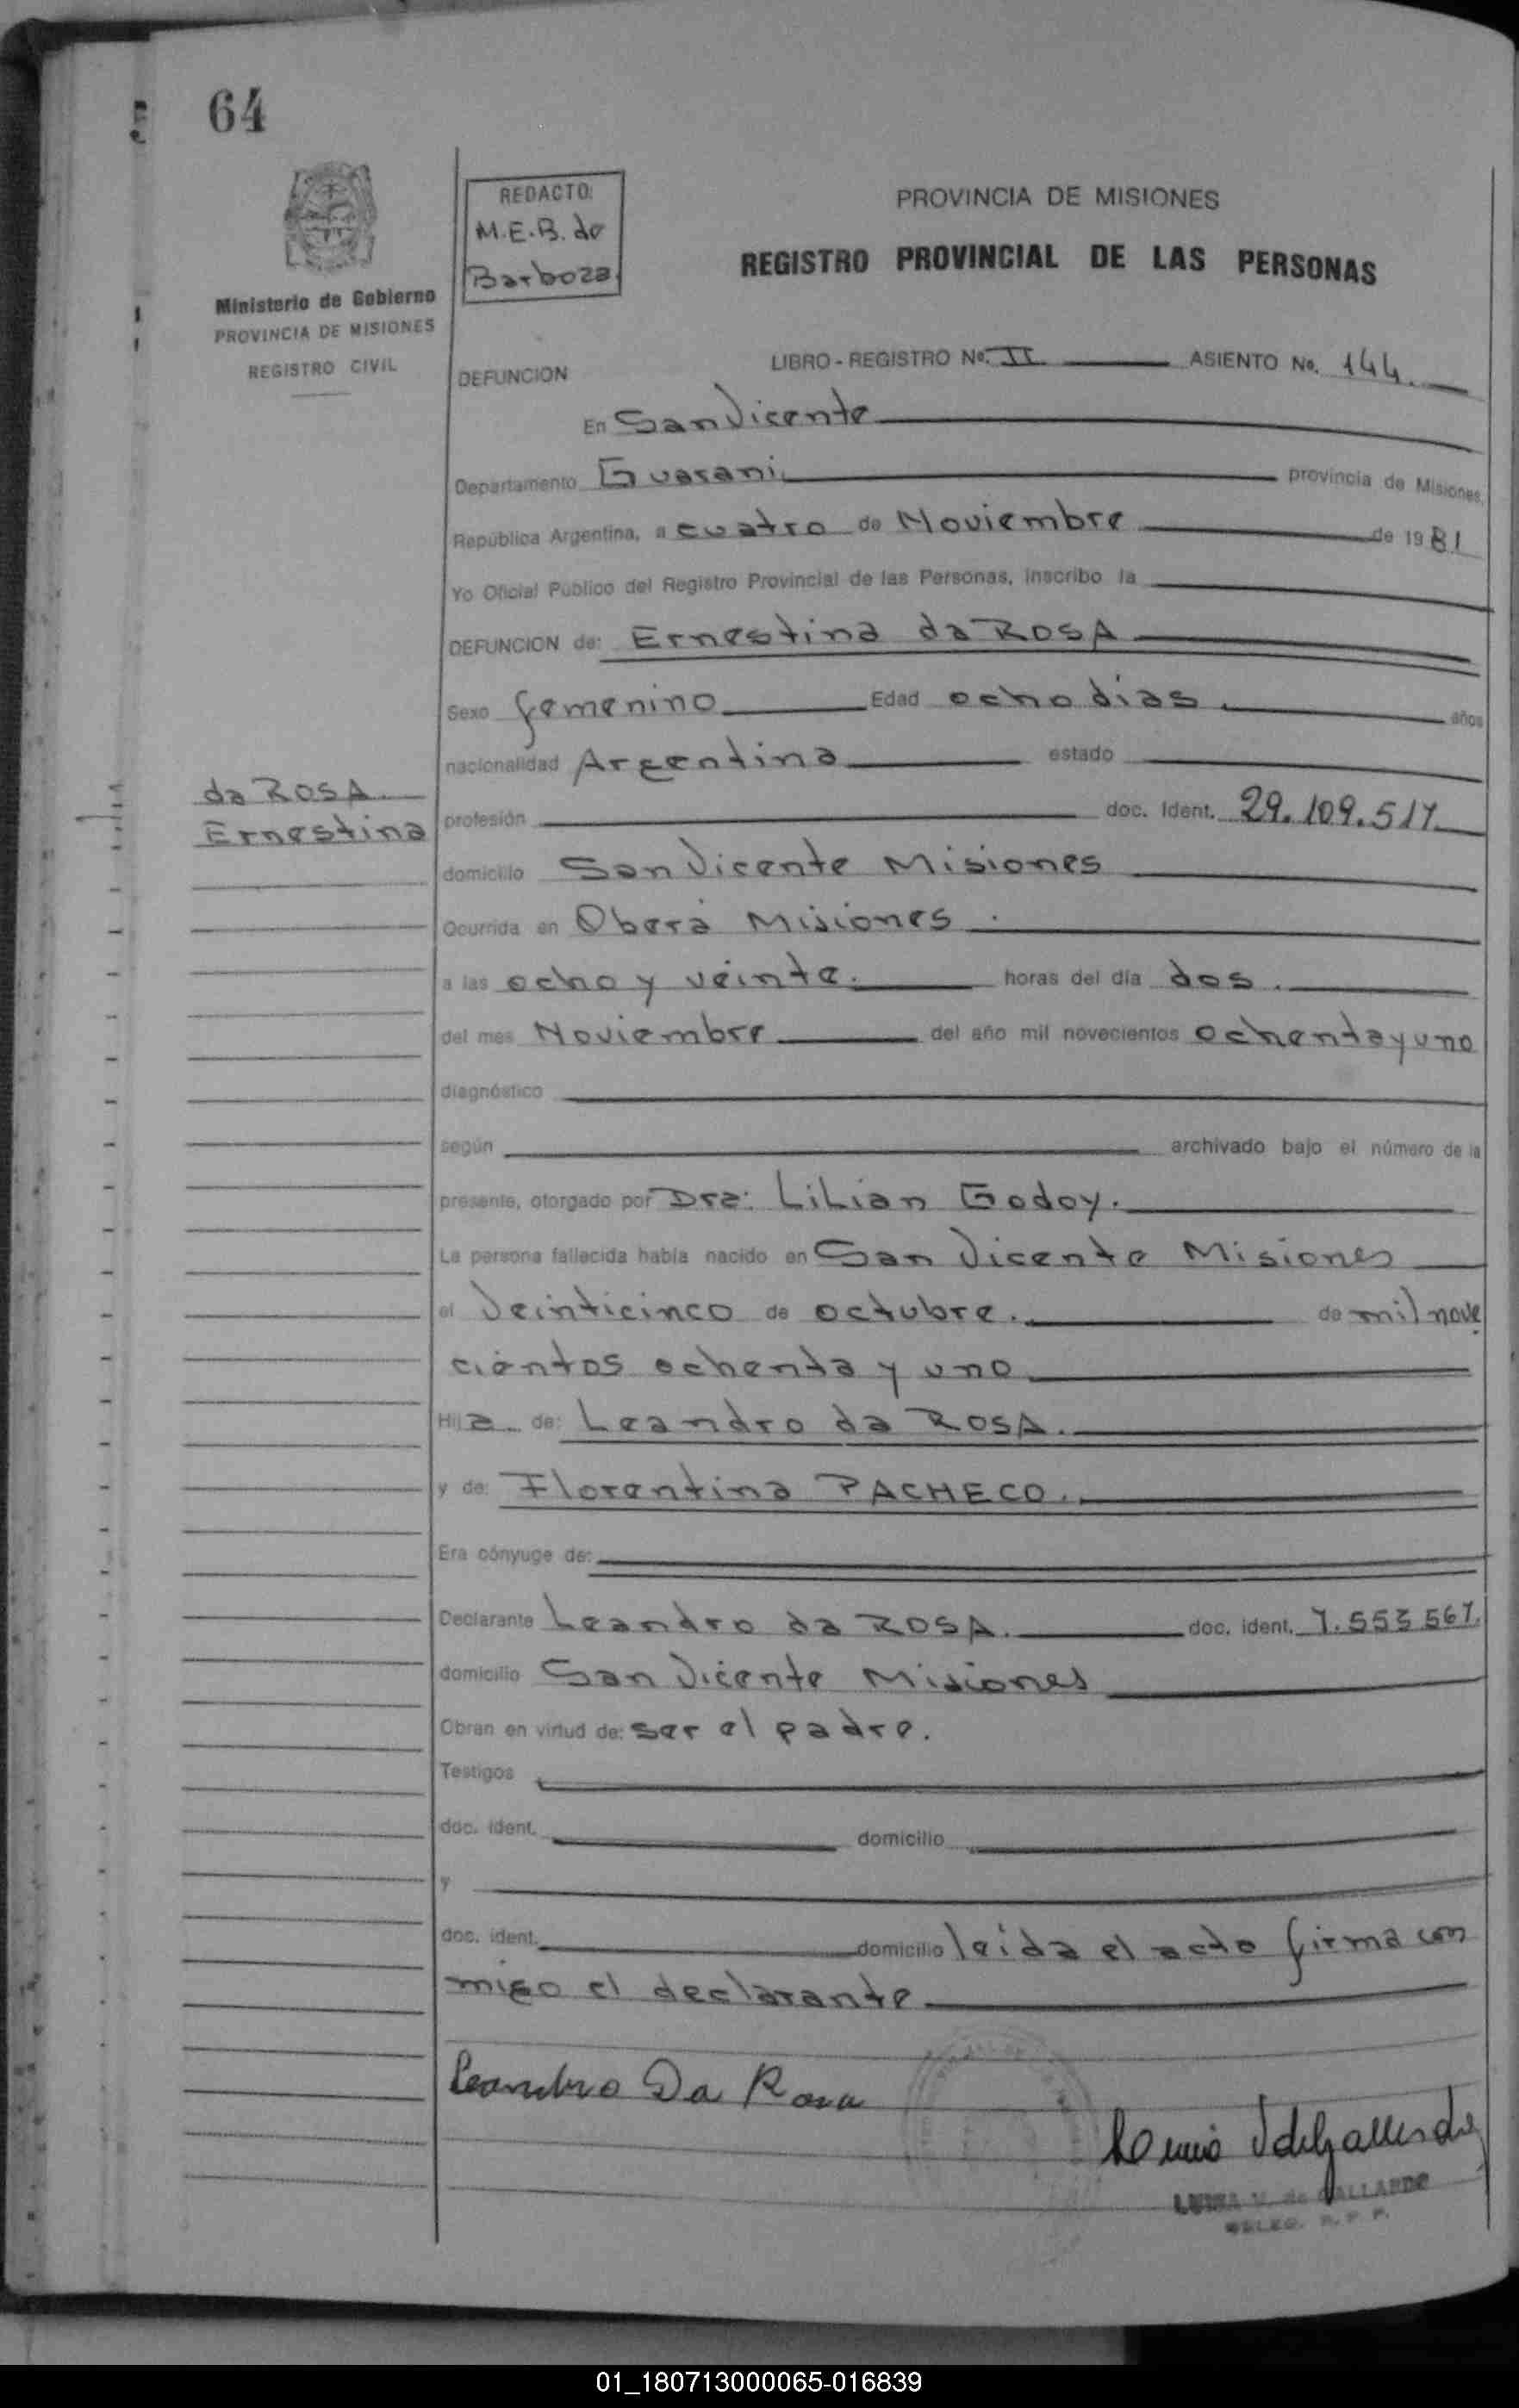 64
REDACTO:
M.E.B. de
Barboza
PROVINCIA DE MISIONES
REGISTRO PROVINCIAL DE LAS PERSONAS
Ministerio de Gobierno
PROVINCIA DE MISIONES
REGISTRO CIVIL
DEFUNCION
LIBRO - REGISTRO No. II ASIENTO No. 144.
En San Vicente
Departamento Guarani provincia de Misiones,
República Argentina, a cuatro de Noviembre de 1981
Yo Oficial Público del Registro Provincial de las Personas, inscribo la
DEFUNCION de: Ernestina da ROSA
Sexo femenino Edad ocho dias años
nacionalidad Argentina estado
da ROSA
Ernestina
profesión doc. Ident. 29.109.517
domicilio San Vicente Misiones
Ocurrida en Oberá Misiones.
a las ocho y veinte. horas del día dos.
del mes Noviembre del año mil novecientos ochenta y uno
diagnóstico
según archivado bajo el número de la
presente, otorgado por Dra: Lilian Godoy.
La persona fallecida había nacido en San Vicente Misiones
el Veinticinco de octubre. de mil nove
cientos ochenta y uno
Hija de: Leandro da ROSA.
y de: Florentina PACHECO.
Era cónyuge de:
Declarante Leandro da ROSA. doc. ident. 7.553 567.
domicilio San Vicente Misiones
Obran en virtud de: ser el padre.
Testigos
doc. ident. domicilio
y
doc. ident. domicilio leida el acto firma con
migo el declarante
Leandro Da Rosa
LUISA V. de GALLARDO
DELEG. R. P. P.
01_180713000065-016839